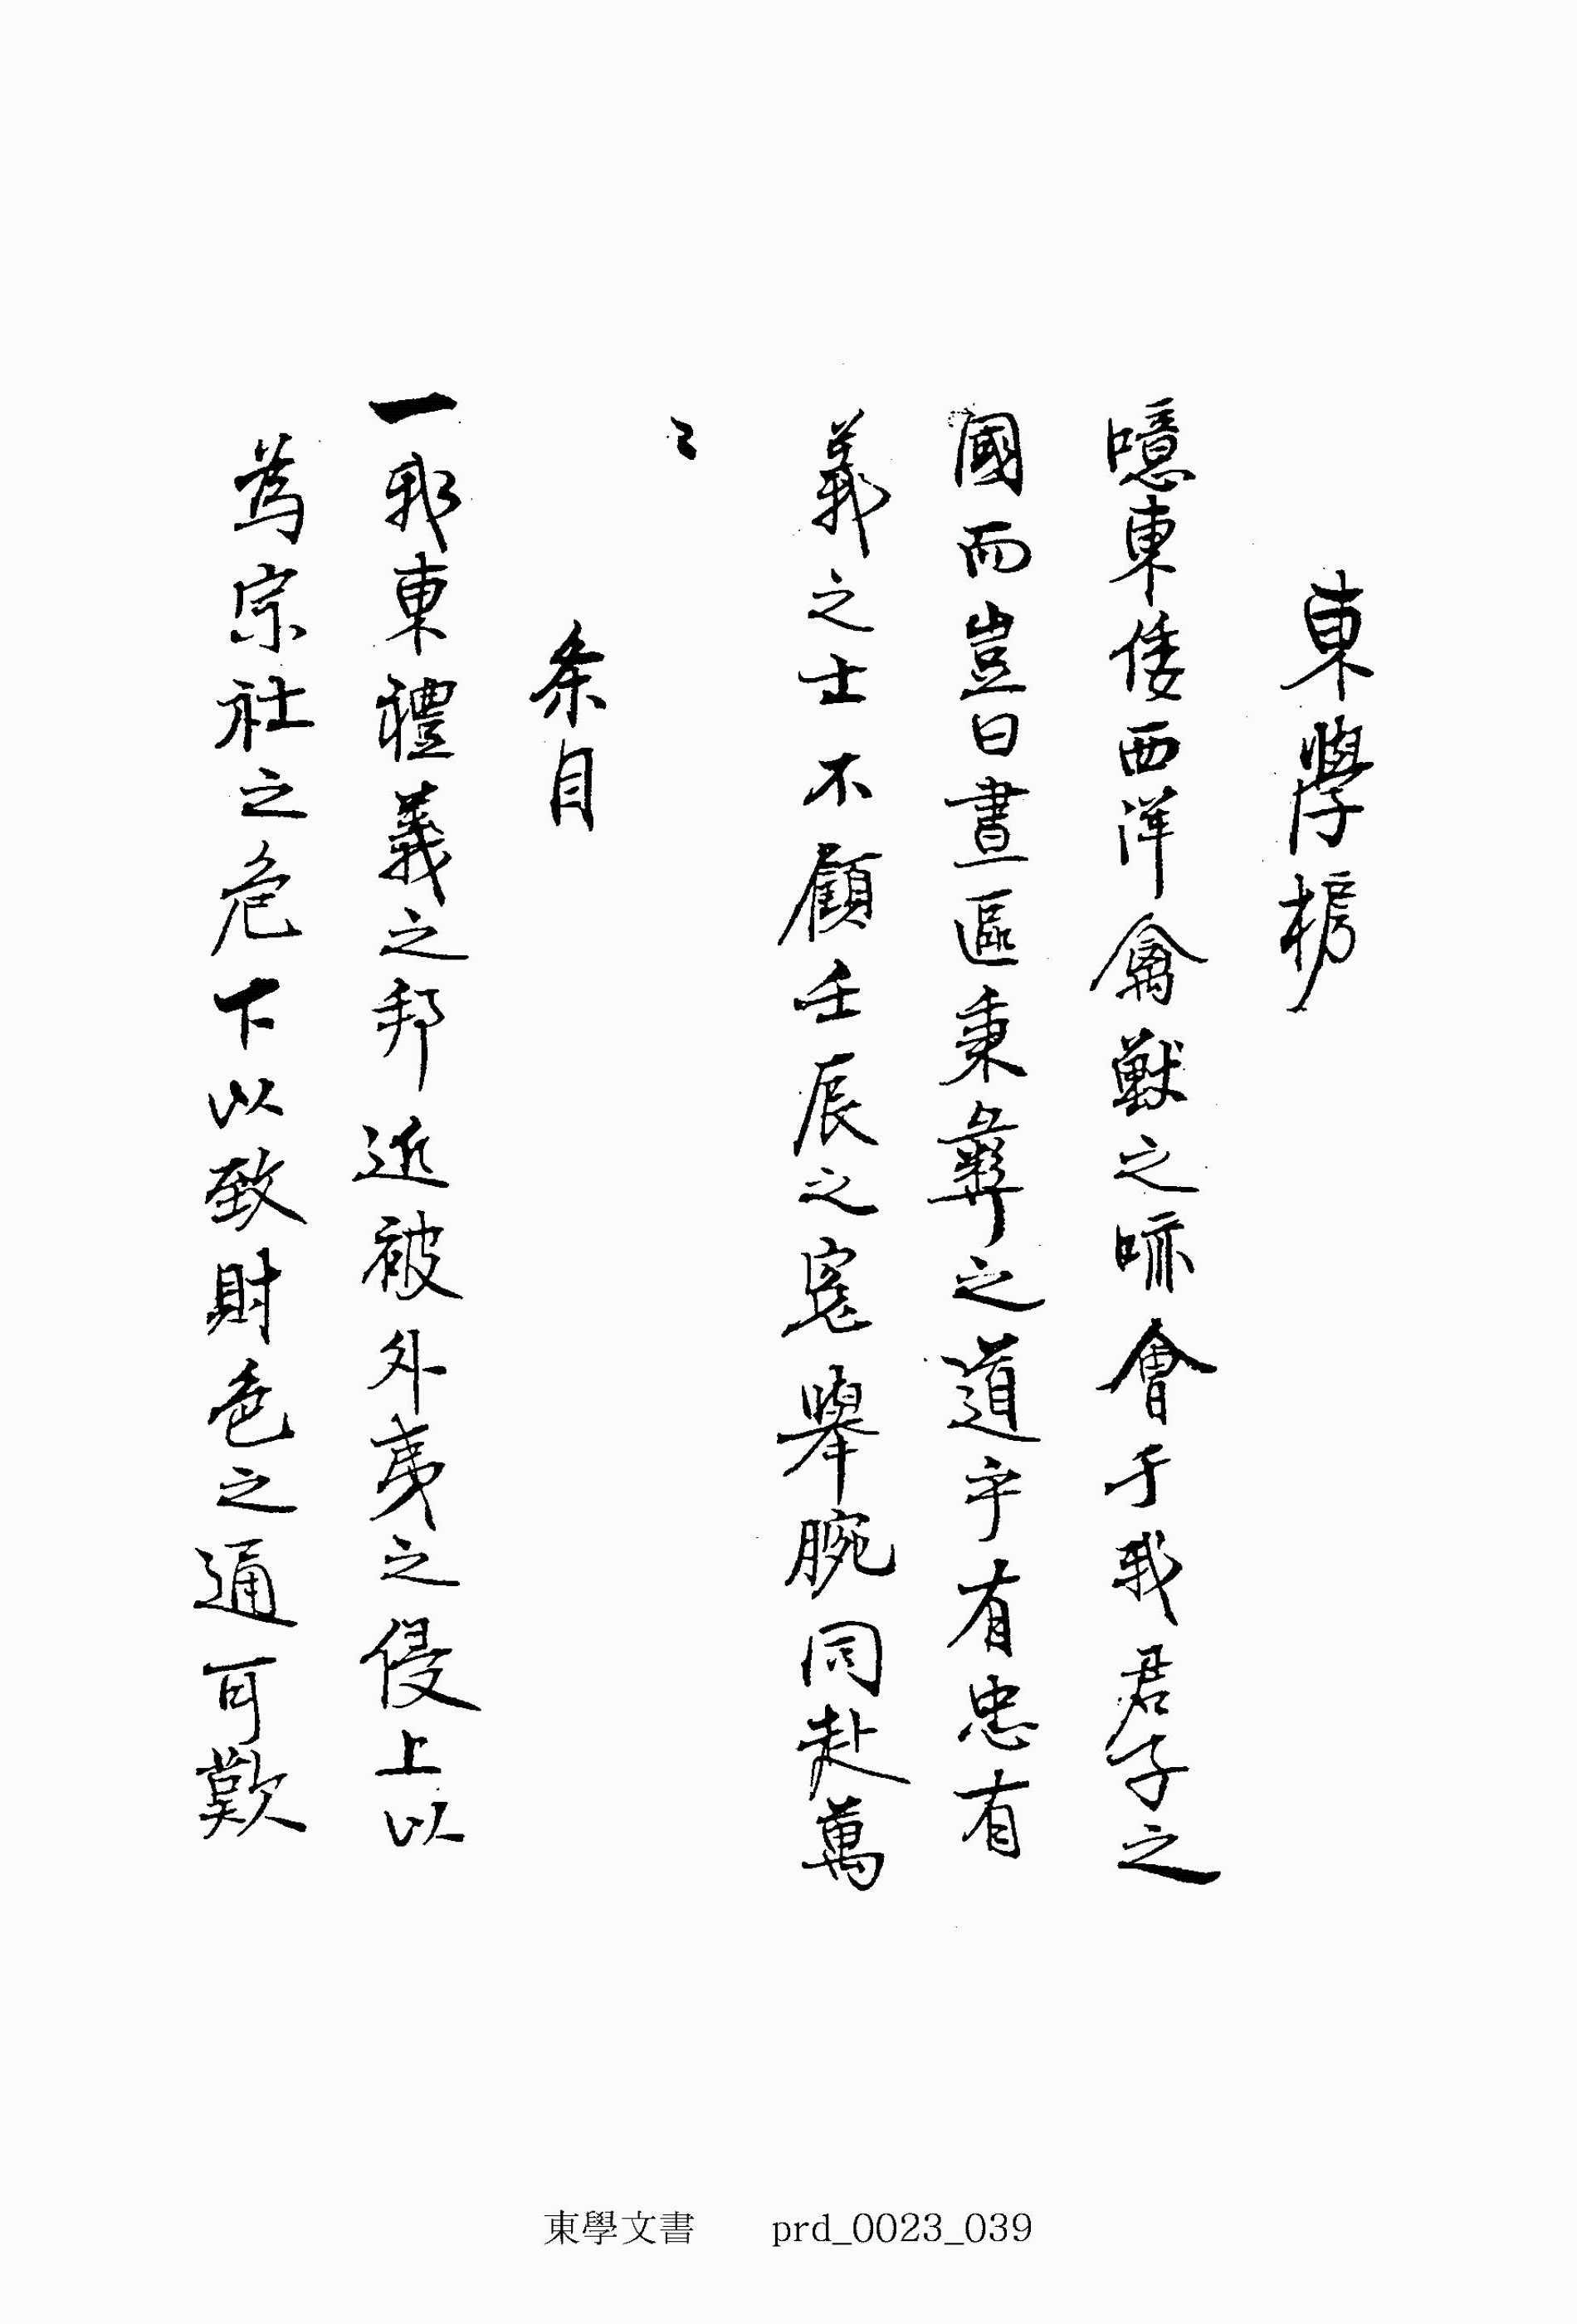 東學榜
噫東倭西洋禽獸之跡會于我君子之
國而豈曰晝區秉彛之道乎有忠有
義之士不顧壬辰之寃擧腕同赴萬
〻
条目
一我東禮義之邦近被外夷之侵上以
為宗社之危下以致財色之通可歎
東學文書 prd_0023_039